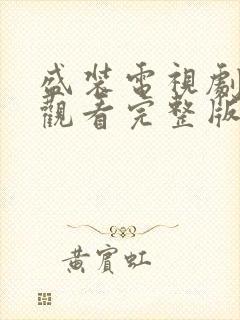 盛裝電視劇
觀看完整版
黃賓虹